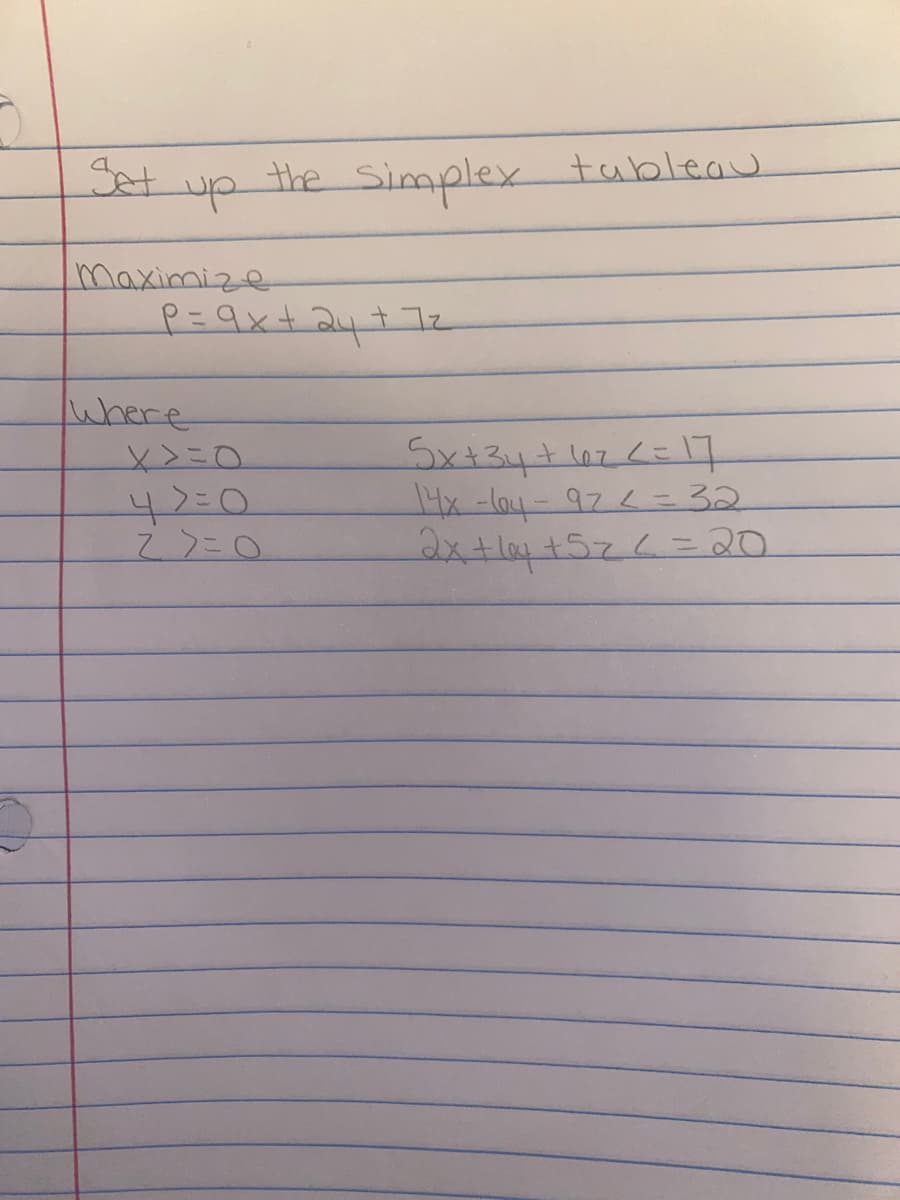 Set up the simplex tableau
Maximize
P = 9x + 2y + 7z
Where
x >= 0
5x + 3y + 6z <= 17
y >= 0
14x - 6y - 9z <= 32
z >= 0
2x + 6y + 5z <= 20